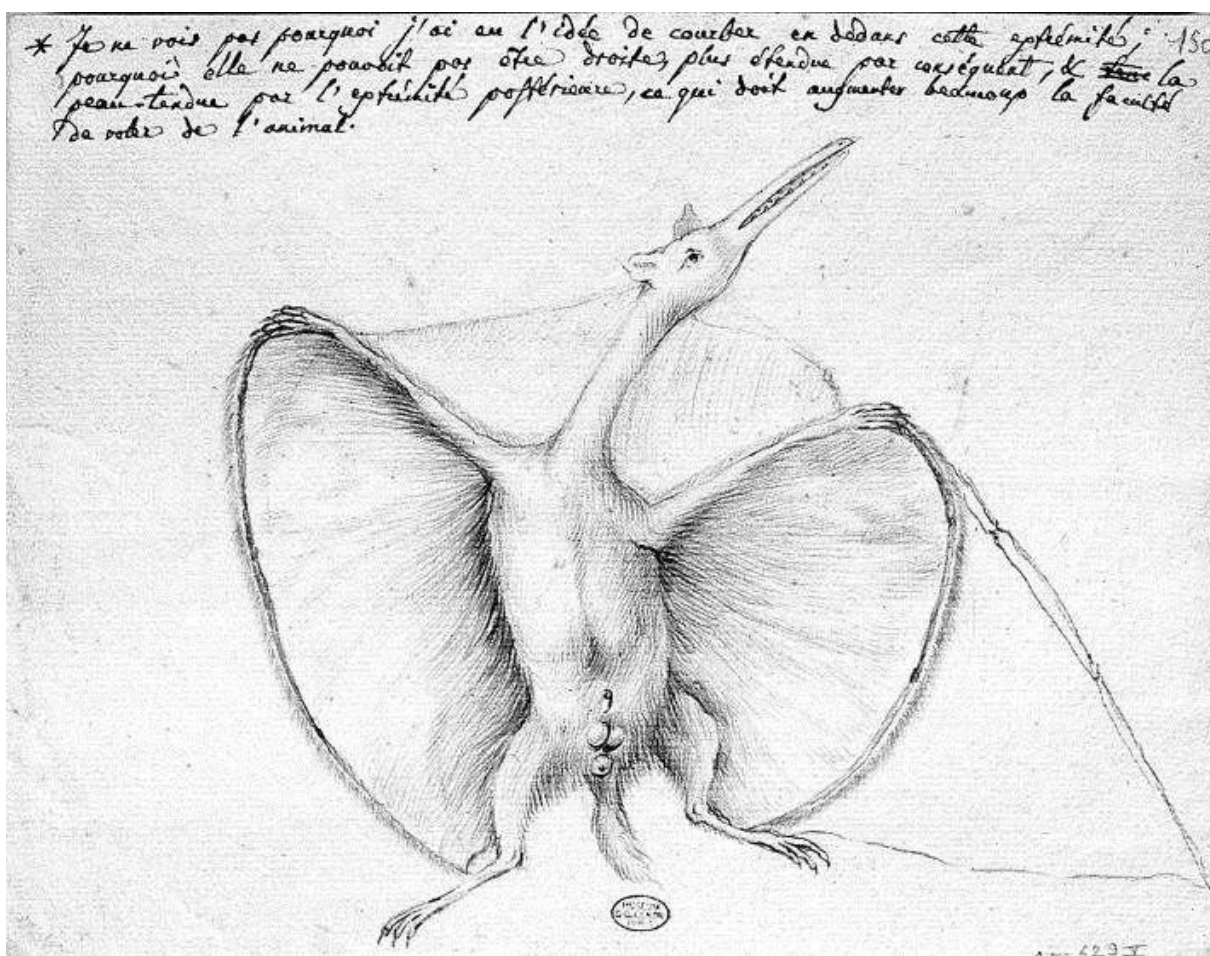 * Je ne vois pas pourquoi j'ai eu l'idée de courber en dedans cette extrémité; 150
pourquoi elle ne pouvoit pas être droite, plus étendue par conséquent, & la
peau tendue par l'extrémité postérieure, ce qui doit augmenter beaucoup la faculté
de voler de l'animal.